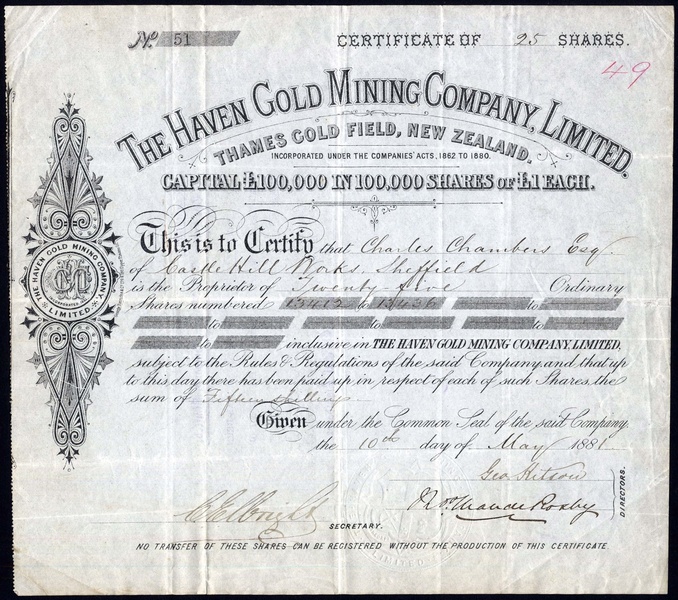 No 51 CERTIFICATE OF 25 SHARES.
49
THE HAVEN GOLD MINING COMPANY, LIMITED.
THAMES GOLD FIELD, NEW ZEALAND.
INCORPORATED UNDER THE COMPANIES' ACTS, 1862 TO 1880.
CAPITAL £100,000 IN 100,000 SHARES OF £1 EACH.
This is to Certify that Charles Chambers Esq.
of Castle Hill Works, Sheffield
is the Proprietor of Twenty-five Ordinary
Shares numbered 13412 to 13436 to
to to to
to inclusive in THE HAVEN GOLD MINING COMPANY, LIMITED,
subject to the Rules & Regulations of the said Company, and that up
to this day there has been paid up in respect of each of such Shares, the
sum of Fifteen shillings
Given under the Common Seal of the said Company
the 10th day of May 1881
Geo Kitson
Maude Roxby
DIRECTORS.
SECRETARY.
NO TRANSFER OF THESE SHARES CAN BE REGISTERED WITHOUT THE PRODUCTION OF THIS CERTIFICATE.
THE HAVEN GOLD MINING COMPANY
LIMITED.
LIMITED